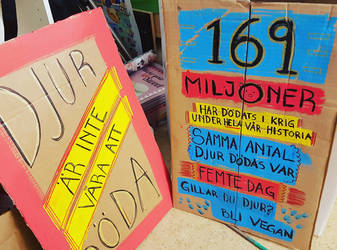 DJUR
ÄR INTE
VARA ATT
DÖDA
169
MILJONER
HAR DÖDATS I KRIG
UNDER HELA VÅR HISTORIA
SAMMA ANTAL
DJUR DÖDAS VAR
FEMTE DAG
GILLAR DU DJUR?
BLI VEGAN